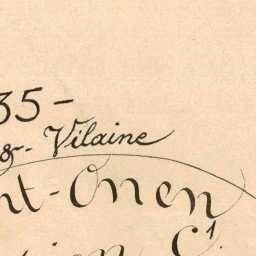 35-
&- Vilaine
nt-Onen
C¹